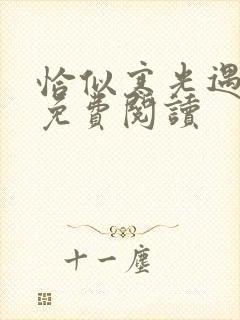 恰似寒光遇
免費閱讀
十一塵